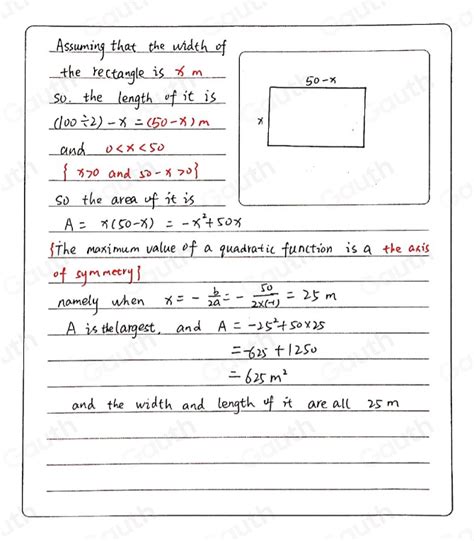 Assuming that the width of
the rectangle is x m
so. the length of it is
(100÷2)-x =(50-x)m
and 0<x<50
{ x>0 and 50-x>0}
so the area of it is
A = x(50-x) = -x²+50x
{The maximum value of a quadratic function is a the axis
of symmetry}
namely when x = - b/2a = - 50/2×(-1) = 25 m
A is the largest, and A = -25²+50×25
= -625 + 1250
= 625 m²
and the width and length of it are all 25 m
50-x
x
Gauth
Gauth
Gauth
Gauth
Gauth
Gauth